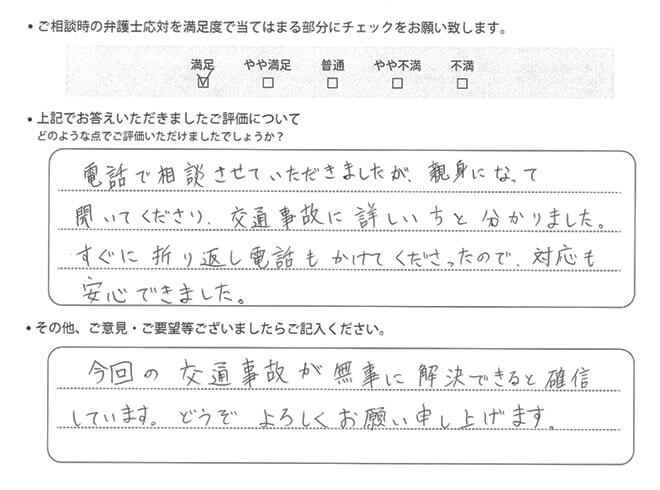 ・ご相談時の弁護士応対を満足度で当てはまる部分にチェックをお願い致します。
満足 やや満足 普通 やや不満 不満
☑ □ □ □ □
・上記でお答えいただきましたご評価について
どのような点でご評価いただけましたでしょうか？
電話で相談させていただきましたが、親身になって
聞いてくださり、交通事故に詳しいちと分かりました。
すぐに折り返し電話もかけてくださったので、対応も
安心できました。
・その他、ご意見・ご要望等ございましたらご記入ください。
今回の交通事故が無事に解決できると確信
しています。どうぞよろしくお願い申し上げます。